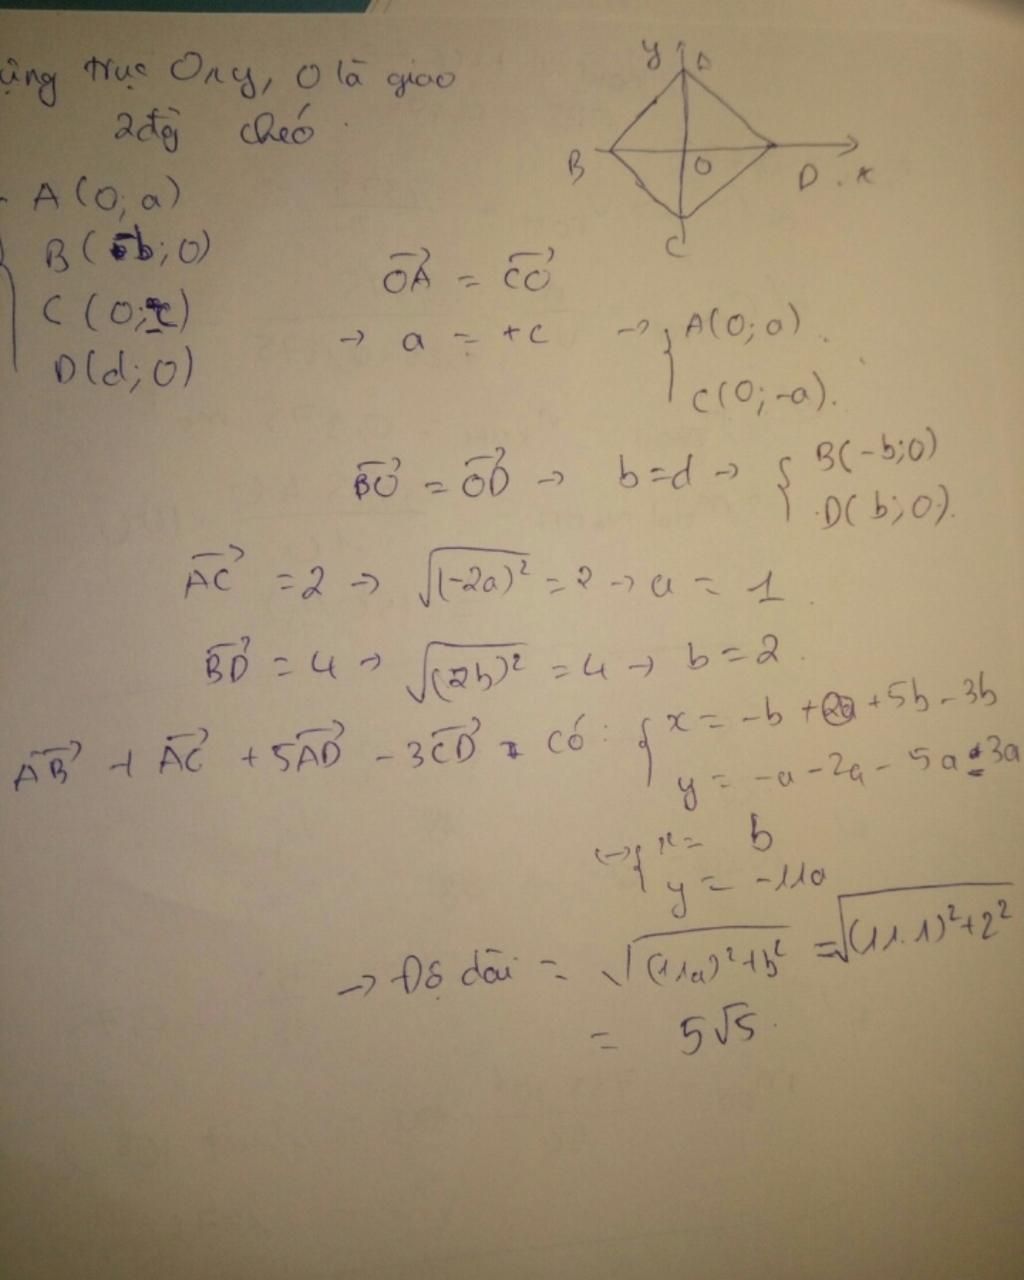 ựng trục Oxy, O là giao
2 đg chéo.
y A
B O D x
C
A(0; a)
B(-b; 0)
C(0; -c)
D(d; 0)
OA = CO
→ a = +c → { A(0; a).
C(0; -a).
BO = OD → b = d → { B(-b; 0)
D(b; 0).
AC = 2 → √(-2a)² = 2 → a = 1.
BD = 4 → √(2b)² = 4 → b = 2.
AB + AC + 5AD - 3CD có: { x = -b + + 5b - 3b
y = -a - 2a - 5a - 3a
↔ { x = b
y = -11a
→ Độ dài = √(11a)² + b² = √(11.1)² + 2²
= 5√5.